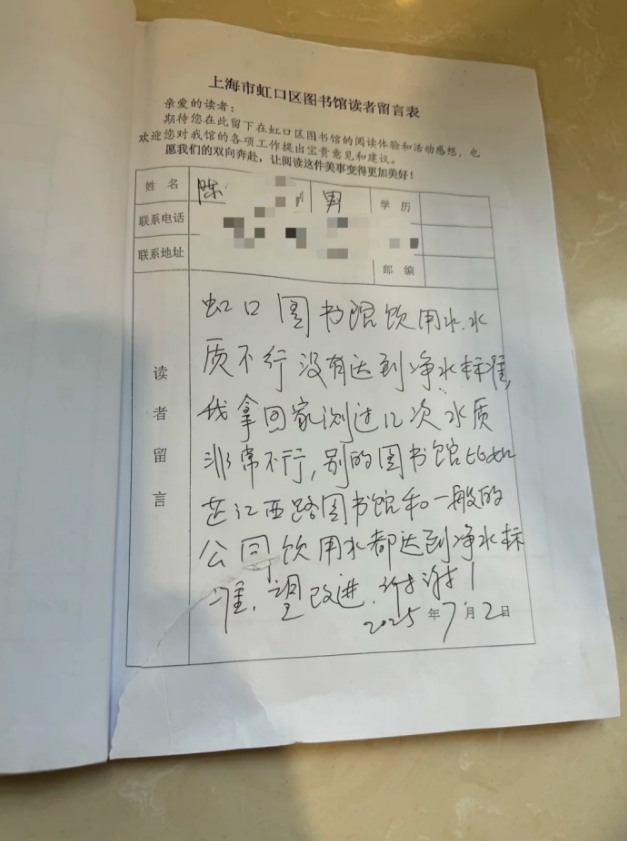 上海市虹口区图书馆读者留言表
亲爱的读者：
期待您在此留下在虹口区图书馆的阅读体验和活动感想，也
欢迎您对我馆的各项工作提出宝贵意见和建议。
愿我们的双向奔赴，让阅读这件美事变得更加美好！
姓 名 陈 男 学 历
联系电话
联系地址 邮 编
读者留言
虹口图书馆饮用水，水
质不行没有达到净水标准，
我拿回家测过几次水质
非常不行，别的图书馆比如
芷江西路图书馆和一般的
公司饮用水都达到净水标
准，望改进，谢谢！
2025年7月2日